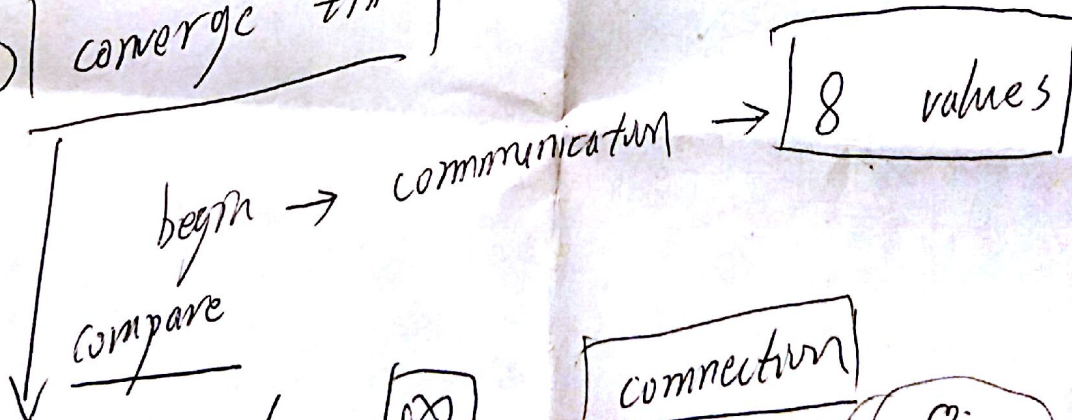 converge
begin → communication → 8 values
compare
connection